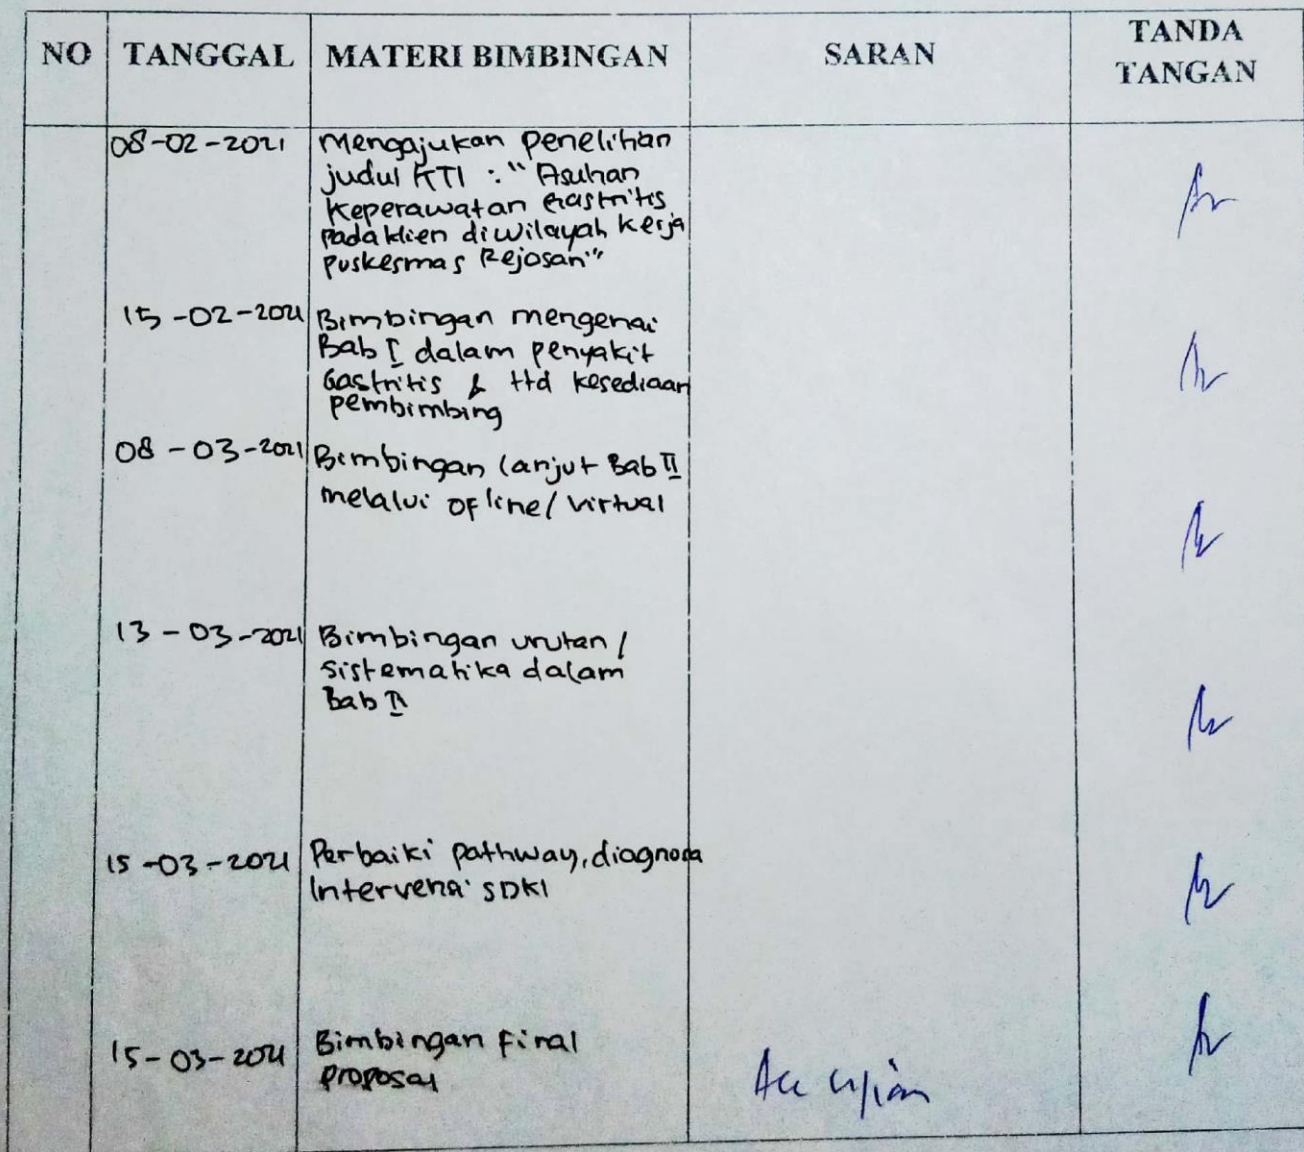 NO TANGGAL MATERI BIMBINGAN SARAN TANDA TANGAN
08-02-2021 Mengajukan penelitian
judul KTI : "Asuhan
Keperawatan Gastritis
pada klien di wilayah kerja
Puskesmas Rejosari"
15-02-2021 Bimbingan mengenai
Bab I dalam penyakit
Gastritis & ttd kesediaan
pembimbing
08-03-2021 Bimbingan lanjut Bab II
melalui ofline/virtual
13-03-2021 Bimbingan urutan/
sistematika dalam
Bab II
15-03-2021 Perbaiki pathway, diagnosa
Intervensi SDKI
15-03-2021 Bimbingan final
proposal
Acc ujian